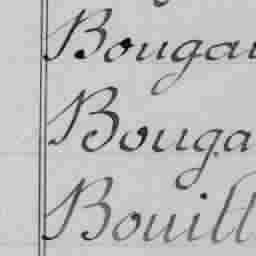 Bougai
Bouga
Bouill